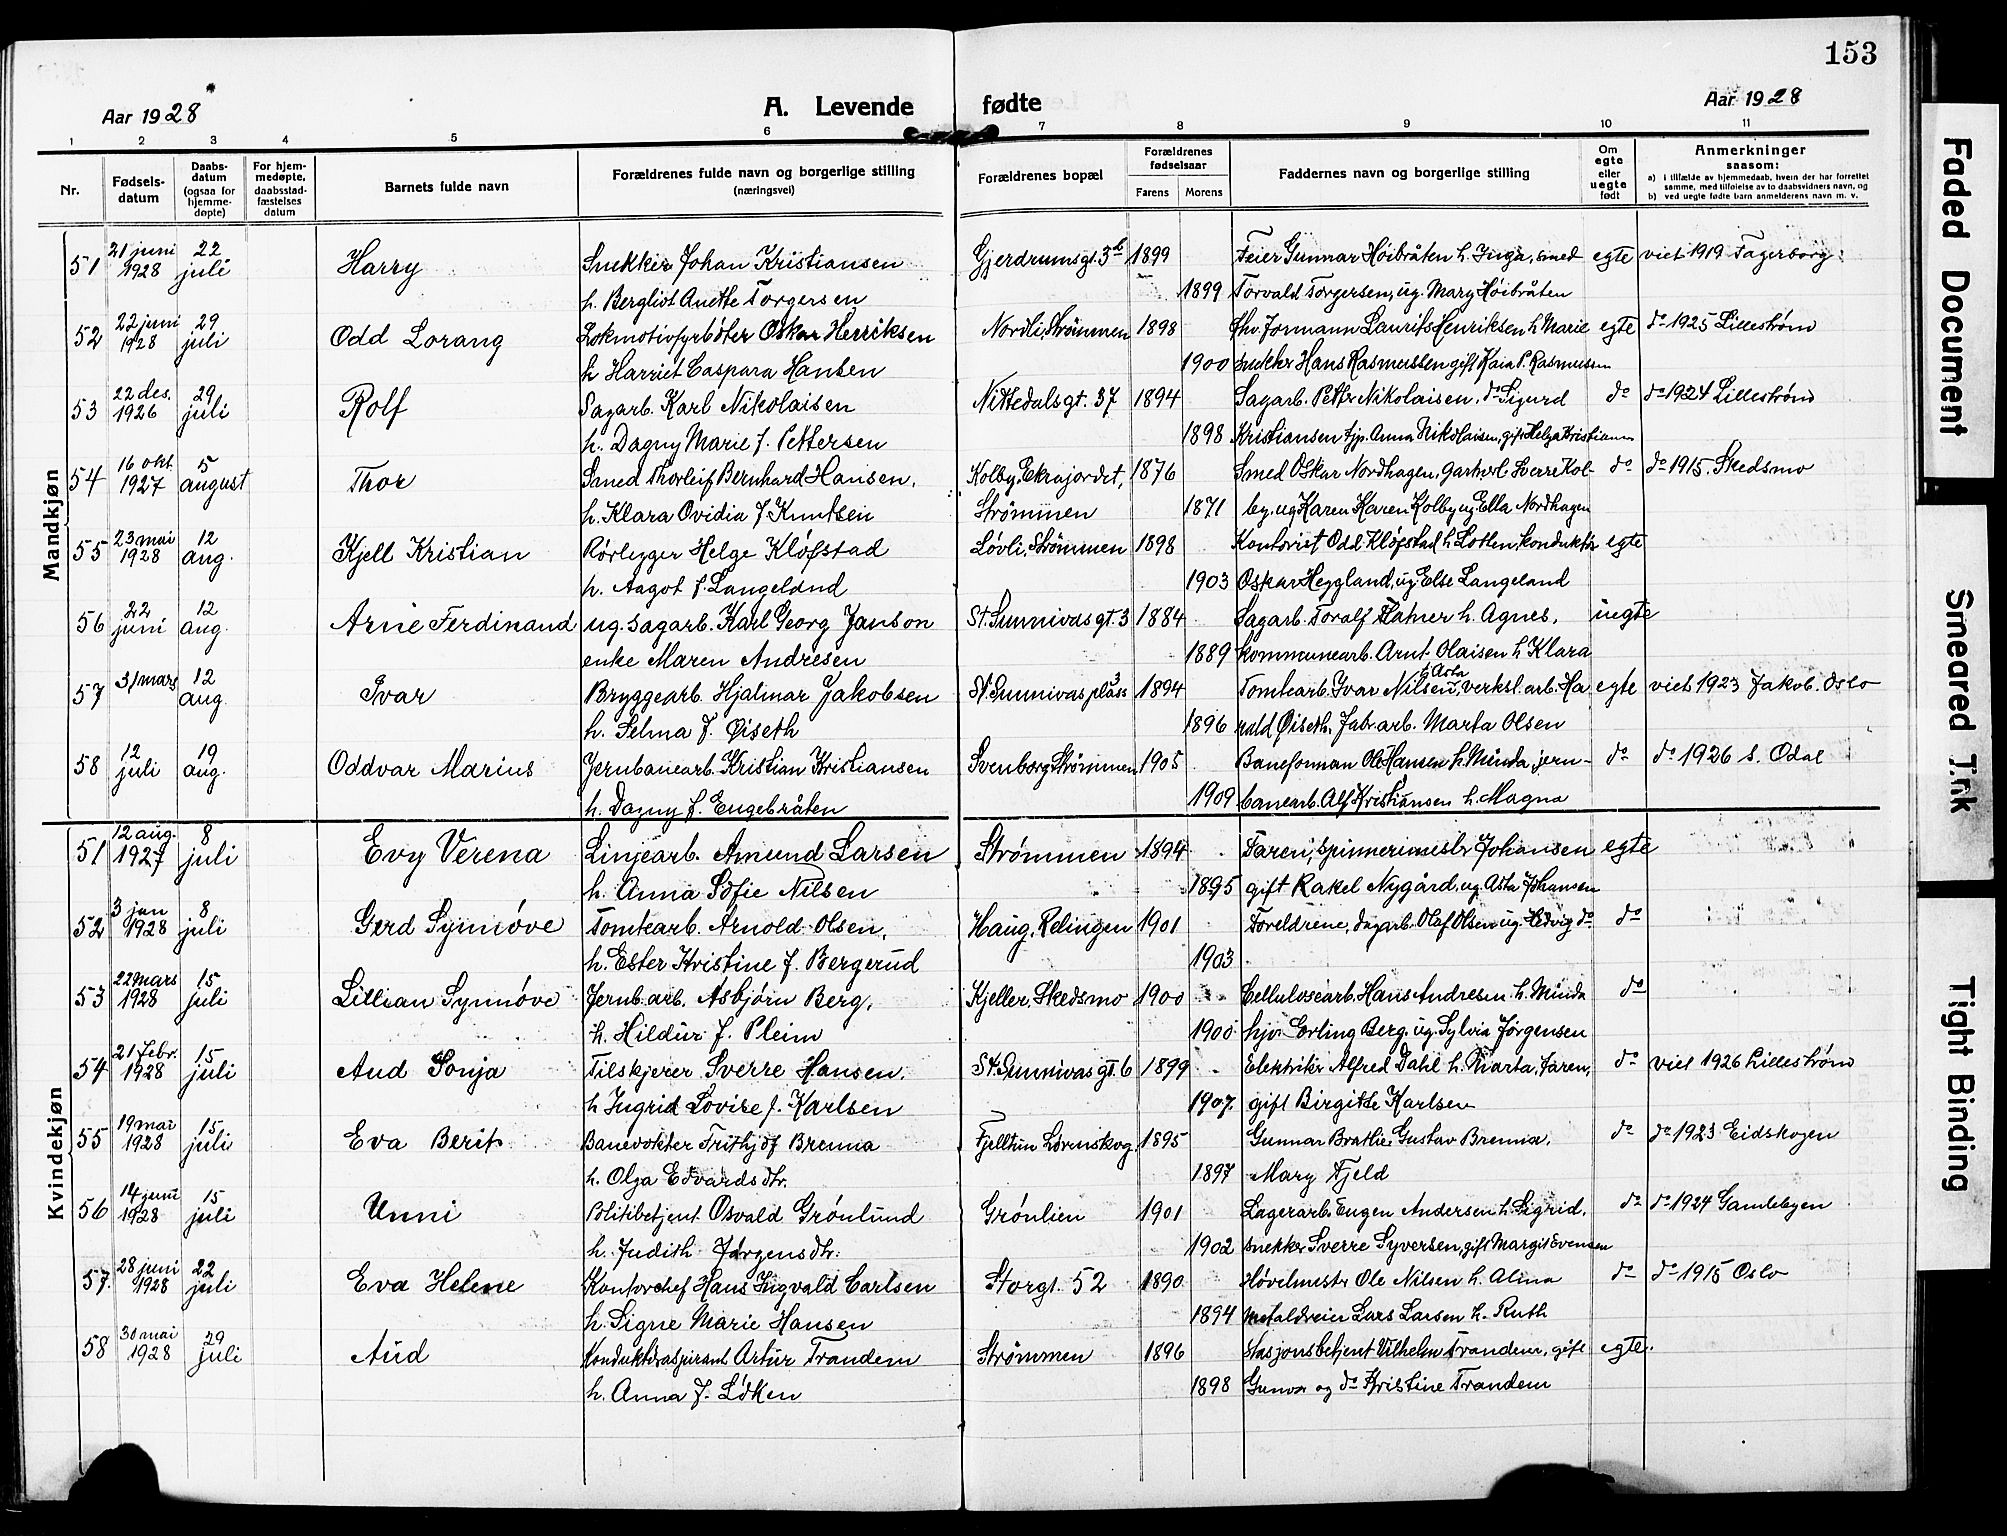 153
Aar 1928 A. Levende fødte Aar 1928
1 2 3 4 5 6 7 8 9 10 11
Nr. Fødsels-datum Daabs-datum (ogsaa for hjemme-døpte) For hjem-medøpte, daabsstad-fæstelses datum Barnets fulde navn Forældrenes fulde navn og borgerlige stilling (næringsvei) Forældrenes bopæl Forældrenes fødselsaar Farens Morens Faddernes navn og borgerlige stilling Om egte eller uegte født Anmerkninger saasom:
a) i tilfælde av hjemmedaab, hvem der har forrettet samme, med tilføielse av to daabsvidners navn, og
b) ved uegte fødte barn anmelderens navn m. v.
Mandkjøn
51 21 juni 1928 22 juli Harry Snekker Johan Kristiansen Gjerdrumsgt. 3b 1899 Feier Gunnar Høibråten h. Inga, smed egte viet 1919 Fagerborg
h. Bergliot Anette Torgersen 1899 Torvald Torgersen, ug. Mary Høibråten
52 22 juni 1928 29 juli Odd Lorang Lokmotivfyrbøter Oskar Henriksen Nordli, Strømmen 1898 Formann Laurits Henriksen h Marie egte do 1925 Lillestrøm
h Harriet Caspara Hansen 1900 snekker Hans Rasmussen gift Kaia P. Rasmussen
53 22 des. 1926 29 juli Rolf Sagarb. Karl Nikolaisen Nittedalsgt. 37 1894 Sagarb. Petter Nikolaisen, do Sigurd do do 1924 Lillestrøm
h. Dagny Marie f. Pettersen 1898 Kristiansen tjp. Anna Nikolaisen, gift Helga Kristiansen
54 16 okt. 1927 5 august Thor Smed Thorleif Bernhard Hansen, Kolby, Ekrajordet, 1876 Smed Oskar Nordhagen, Gartnerl. Sverre Kol- do do 1915. Skedsmo
h. Klara Ovidia f. Knutsen Strømmen 1871 by, ug Karen Karen Kolby ug Ella Nordhagen
55 23 mai 1928 12 aug. Kjell Kristian Rørlegger Helge Kløfstad Løvli, Strømmen 1898 Kontorist Odd Kløfstad h Lotten, konduktør egte
h. Aagot f. Langeland 1903 Oskar Heggland, ug Else Langeland
56 22 juni 12 aug. Arne Ferdinand ug. sagarb. Karl Georg Janson St. Sunnivasgt. 3 1884 Sagarb. Toralf h. Agnes, uegte
enke Maren Andresen 1889 kommunearb. Arnt Olaisen h Klara
57 31 mars 12 aug. Ivar Bryggearb. Hjalmar Jakobsen St. Sunnivas plass 3 1894 Tomtearb. Ivar Nilsen, Asta verkst. arb. Ha egte viet 1923 Jakob. Oslo
h. Selma f. Øiseth 1896 rald Øiseth, fabr. arb. Marta Olsen
58 12 juli 19 aug. Oddvar Marius Jernbanearb. Kristian Kristiansen Svenborg Strømmen 1905 Baneforman Ole Hansen h. Minda, jern- do do 1926 s. Odal
h. Dagny f. Engebråten 1909 banearb. Alf Kristiansen h. Magna
Kvindekjøn
51 12 aug. 1927 8 juli Evy Verena Linjearb. Amund Larsen Strømmen 1894 Faren, spinnerimestr Johansen egte
h. Anna Sofie Nilsen 1895 gift Rakel Nygård, ug. Asta Johansen
52 3 jan 1928 8 juli Gerd Synnøve Tomtearb. Arnold Olsen, Haug, Relingen 1901 Foreldrene, dagarb. Olaf Olsen ug. Hedvig do do
h. Ester Kristine f. Bergerud 1903
53 22 mars 1928 15 juli Lillian Synnøve Jernb. arb. Asbjørn Berg, Kjeller, Skedsmo 1900 Cellulosearb. Hans Andresen h. Minda do
h. Hildur f. Pleim 1900 hjv. Erling Berg. ug. Sylvia Jørgensen
54 21 febr. 1928 15 juli Aud Sonja Tilskjærer Sverre Hansen, St. Sunnivas gt. 6 1899 Elektriker Alfred Dahl h. Marta, faren, do viet 1926 Lillestrøm
h Ingrid Lovise f. Karlsen 1907. gift Birgitte Karlsen
55 19 mai 1928 15 juli Eva Berit Banevokter Frithjof Brenna Fjelltun Lørenskog 1895 Gunnar Brathe Gustav Brenna, do do 1923 Eidskogen
h. Olga Edvardsdtr. 1897 Mary Fjeld
56 14 juni 1928 15 juli Unni Politibetjent Osvald Grønlund Grønlien 1901 Lagerarb. Eugen Andersen h Sigrid, do do 1924 Gamlebyen
h. Judith Jørgensdtr. 1902 snekker Sverre Syversen, gift Margit Evensen
57. 28 juni 1928 22 juli Eva Helene Kontorchef Hans Ingvald Carlsen Storgt. 52 1890 Høvlmestr Ole Nilsen h. Alma do do 1915 Oslo
h. Signe Marie Hansen 1894 Metaldreier Lars Larsen h. Ruth
58 30 mai 1928 29 juli Aud Konduktøraspirant Artur Trandem Strømmen 1896 Stasjonsbetjent Vilhelm Trandem, gift egte.
h. Anna f. Løken 1898 Gunvor og do Kristine Trandem
Faded Document
Smeared Ink
Tight Binding